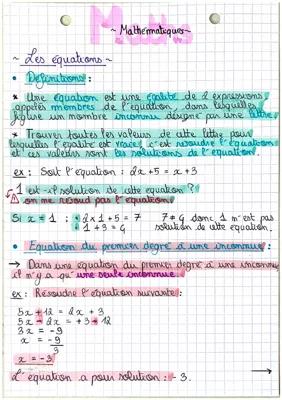 Maths
~ Mathématiques ~
~ Les équations ~
• Définitions :
* Une équation est une égalité de 2 expressions,
appelés membres de l'équation, dans lesquelles
figure un nombre inconnus désigné par une lettre.
* Trouver toutes les valeurs de cette lettre pour
lesquelles l'égalité est vraie, c'est résoudre l'équation
et ces valeurs sont les solutions de l'équation.
ex : Soit l'équation : 2x + 5 = x + 3
1 est-il solution de cette équation ?
⚠ on ne résoud pas l'équation.
Si x = 1 : 2 x 1 + 5 = 7 7 ≠ 4 donc 1 n'est pas
1 + 3 = 4 solution de cette équation.
• Équation du premier degré à une inconnue :
→ Dans une équation du premier degré à une inconnue,
il n'y a qu'une seule inconnue.
ex : Résoudre l'équation suivante :
5x + 12 = 2x + 3
5x - 2x = + 3 - 12
3x = -9
x = -9
3
x = -3
L'équation a pour solution : - 3.